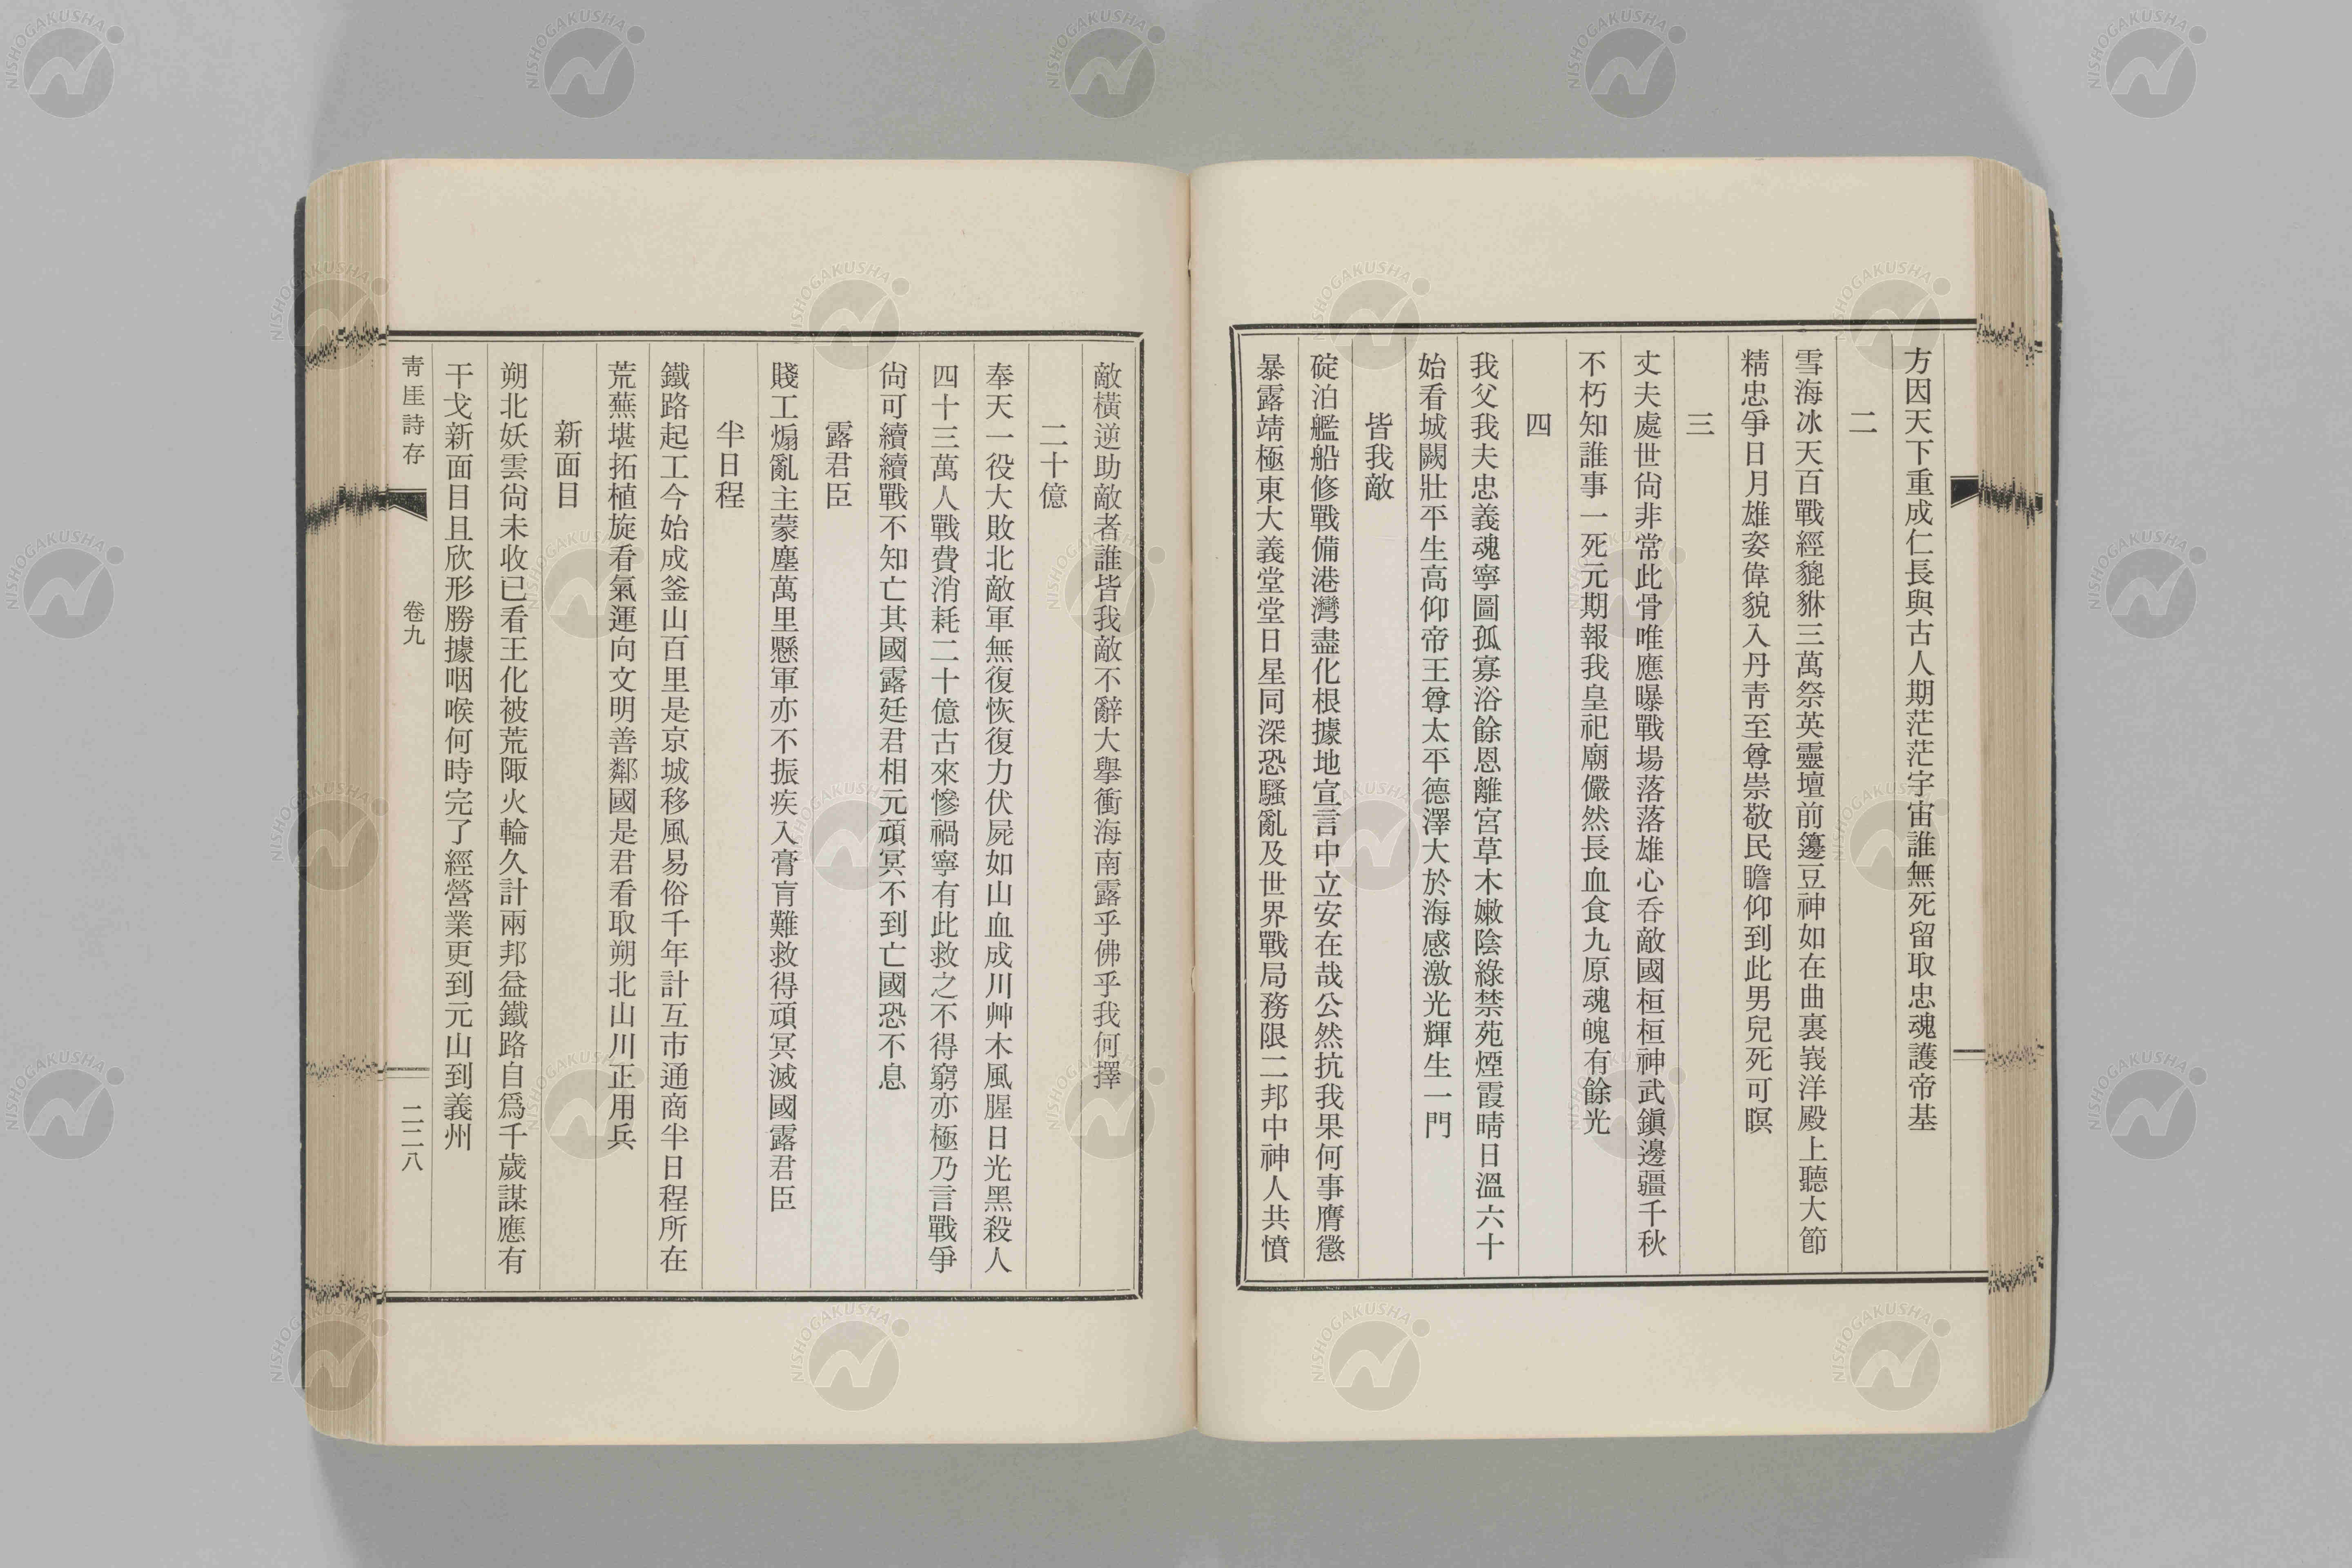 方因天下重成仁長與古人期茫茫宇宙誰無死留取忠魂護帝基
二
雪海冰天百戰經貔貅三萬祭英靈壇前籩豆神如在曲裏峩洋殿上聽大節
精忠爭日月雄姿偉貌入丹靑至尊崇敬民瞻仰到此男兒死可瞑
三
丈夫處世尙非常此骨唯應曝戰場落落雄心呑敵國桓桓神武鎭邊疆千秋
不朽知誰事一死元期報我皇祀廟儼然長血食九原魂魄有餘光
四
我父我夫忠義魂寧圖孤寡浴餘恩離宮草木嫩陰綠禁苑煙霞晴日溫六十
始看城闕壯平生高仰帝王尊太平德澤大於海感激光輝生一門
皆我敵
碇泊艦船修戰備港灣盡化根據地宣言中立安在哉公然抗我果何事膺懲
暴露靖極東大義堂堂日星同深恐騷亂及世界戰局務限二邦中神人共憤
敵橫逆助敵者誰皆我敵不辭大擧衝海南露乎佛乎我何擇
二十億
奉天一役大敗北敵軍無復恢復力伏屍如山血成川艸木風腥日光黑殺人
四十三萬人戰費消耗二十億古來慘禍寧有此救之不得窮亦極乃言戰爭
尙可續續戰不知亡其國露廷君相元頑冥不到亡國恐不息
露君臣
賤工煽亂主蒙塵萬里懸軍亦不振疾入膏肓難救得頑冥滅國露君臣
半日程
鐵路起工今始成釜山百里是京城移風易俗千年計互市通商半日程所在
荒蕪堪拓植旋看氣運向文明善鄰國是君看取朔北山川正用兵
新面目
朔北妖雲尙未收已看王化被荒陬火輪久計兩邦益鐵路自爲千歲謀應有
干戈新面目且欣形勝據咽喉何時完了經營業更到元山到義州
靑厓詩存 卷九 二二八
NISHOGAKUSHA